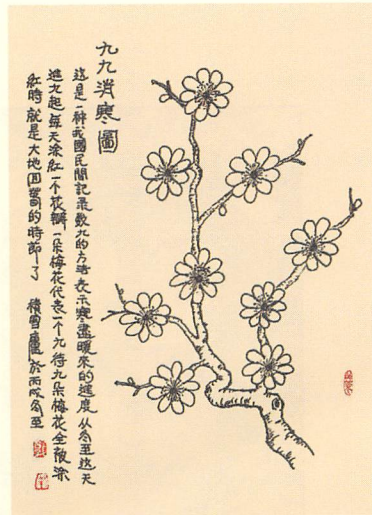 九九消寒圖
這是一种我國民間記录数九的方法表示寒盡暖來的進度从冬至这天
進九起每天涂紅一个花瓣一朵梅花代表一个九待九朵梅花全部涂
紅時就是大地回春的時節了 積雪廬於丙戌冬至